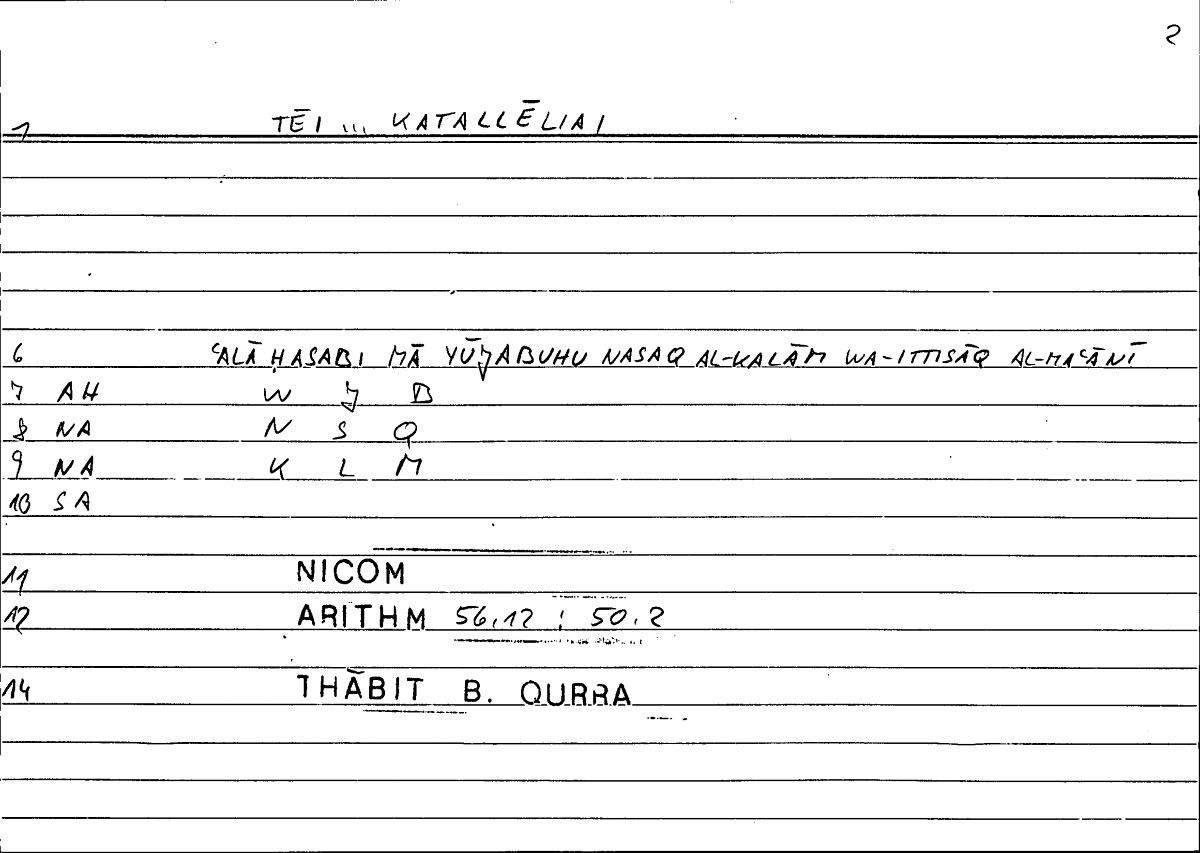 2
1 TĒI ... KATALLĒLIAI
6 ʿALĀ ḤASABI MĀ YŪǦABUHU NASAQ AL-KALĀM WA-ITTISĀQ AL-MAʿĀNĪ
7 AH W Ǧ B
8 NA N S Q
9 NA K L M
10 SA
11 NICOM
12 ARITHM 56,12 ; 50,2
14 THĀBIT B. QURRA